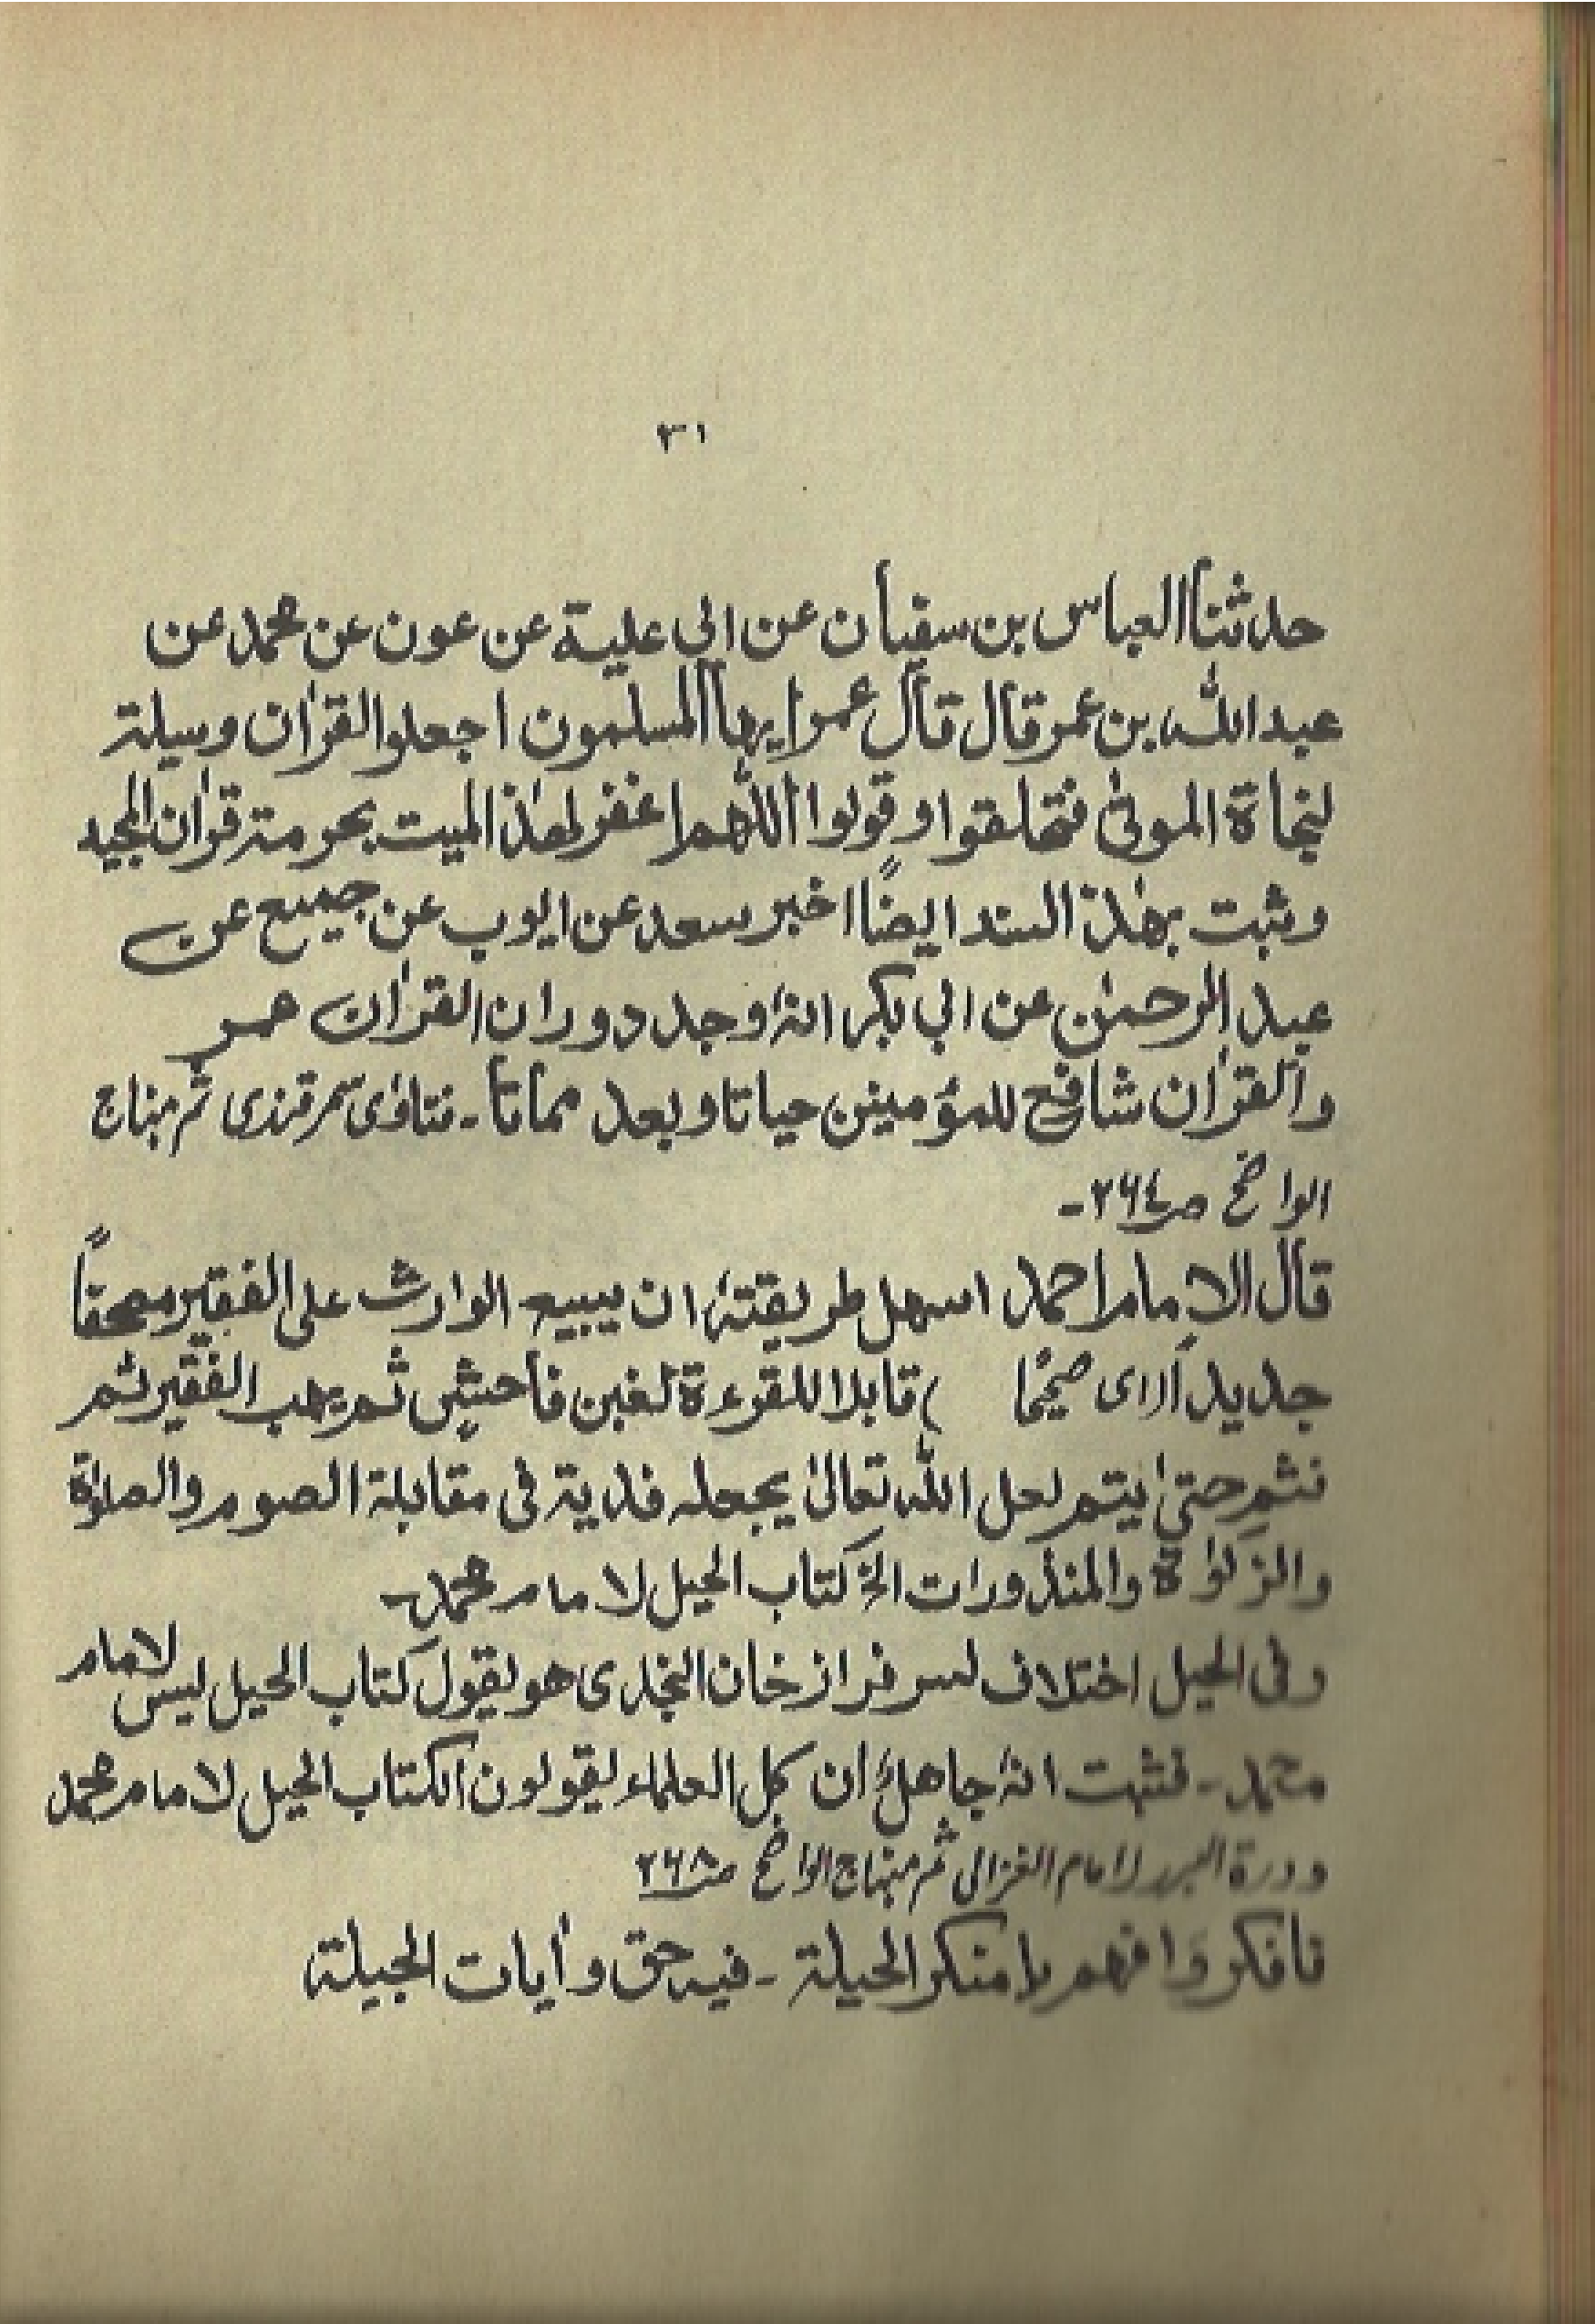 ٣١
حدثنا العباس بن سفيان عن ابي علية عن عون عن محمد عن
عبد الله بن عمر قال قال عمر ايها المسلمون اجعلوا القراٰن وسيلة
لنجاة الموتٰى فتحلقوا وقولوا اللّٰهم اغفر لهٰذا الميت بحرمة قراٰن المجيد
وثبت بهٰذا السند ايضًا اخبر سعد عن ايوب عن جميع عن
عبد الرحمٰن عن ابي بكر انهٗ وجد دوران القراٰن عمر
والقراٰن شافع للمؤمينن حياتا وبعد مماتا - فتاوٰى سمرقندى ثم منهاج
الواضح ص٢٦٤ -
قال الامام احمد اسهل طريقتهٗ ان يبيع الوارث على الفقير مصحفاً
جديداً (اى صحيحًا ) قابلا للقرءة لغبن فاحش ثم يهب الفقير ثم
فثم حتىٰ يتم لعل الله تعالىٰ يجعله فدية فى مقابلة الصوم والصلوٰة
والزكوٰة والمنذورات الخ كتاب الحيل لامام محمد -
وفى الحيل اختلاف لسرفراز خان النجدى هو يقول كتاب الحيل ليس لامام
محمد - فثبت انهٗ جاهلٌ ان كل العلماء يقولون الكتاب الحيل لامام محمد
ودرة لامام الغزالى ثم منهاج الواضح ص٢٦٨
فافكر وافهم يا منكر الحيلة - فيه حق واٰيات الجيلة